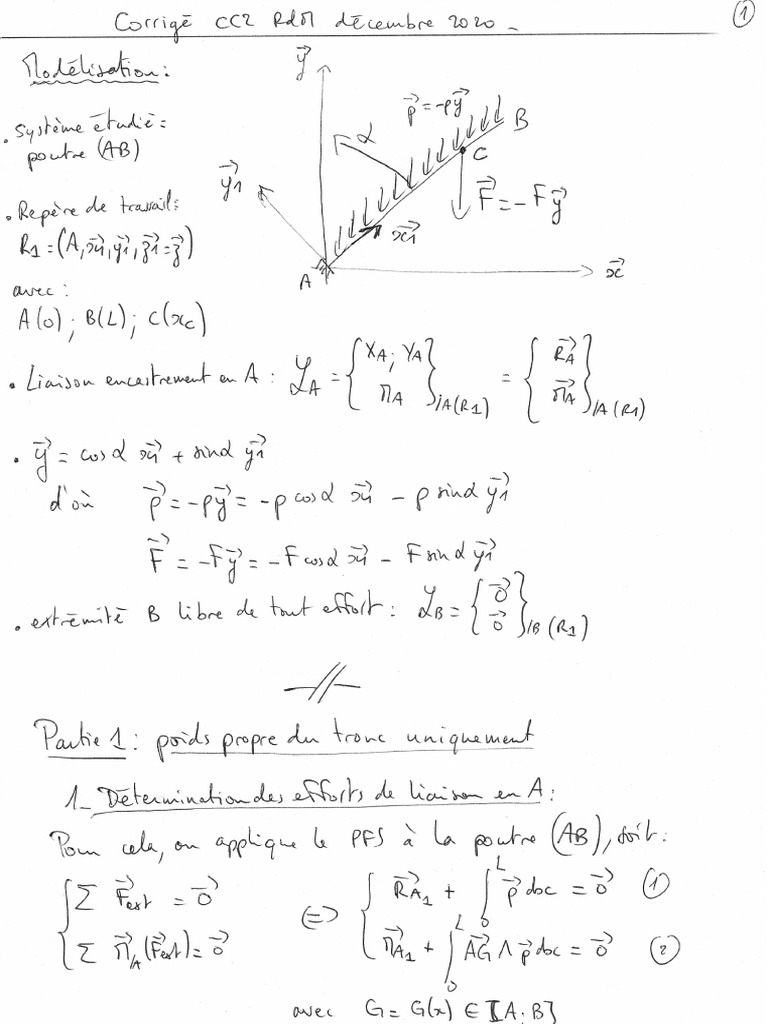 Corrigé CC2 RdM décembre 2020 _
①
Modélisation :
• Système étudié =
poutre (AB)
• Repère de travail :
R1 = (A, x⃗1, y⃗1, z⃗1 = z⃗)
avec :
A(0) ; B(L) ; C(xc)
y⃗
y⃗1
α
p⃗ = -p y⃗
B
C
F⃗ = -F y⃗
x⃗1
A
x⃗
• Liaison encastrement en A : 𝓛A = { XA ; YA
MA }/A (R1) = { R⃗A
M⃗A }/A (R1)
• y⃗ = cosα x⃗1 + sinα y⃗1
d'où p⃗ = -p y⃗ = -p cosα x⃗1 - p sinα y⃗1
F⃗ = -F y⃗ = -F cosα x⃗1 - F sinα y⃗1
• extrémité B libre de tout effort : 𝓛B = { 0⃗
0⃗ }/B (R1)
Partie 1 : poids propre du tronc uniquement
1_ Détermination des efforts de liaison en A :
Pour cela, on applique le PFS à la poutre (AB), soit :
{ Σ F⃗ext = 0⃗ <=> { R⃗A1 + ∫₀ᴸ p⃗ dx = 0⃗ ①
{ Σ M⃗/A (F⃗ext) = 0⃗ { M⃗A1 + ∫₀ᴸ AG⃗ ∧ p⃗ dx = 0⃗ ②
avec G = G(x) ∈ [A ; B]